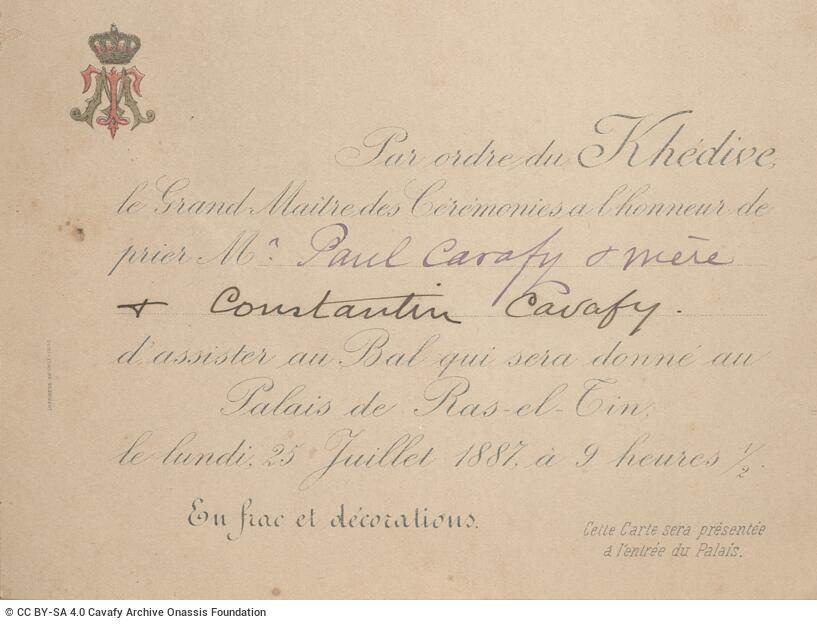 MT
Par ordre du Khédive,
le Grand Maître des Cérémonies a l'honneur de
prier Mr. Paul Cavafy & mère
& Constantin Cavafy.
d'assister au Bal qui sera donné au
Palais de Ras-el-Tin,
le lundi, 25 Juillet 1887, à 9 heures 1/2.
En frac et décorations.
Cette Carte sera présentée
à l'entrée du Palais.
© CC BY-SA 4.0 Cavafy Archive Onassis Foundation